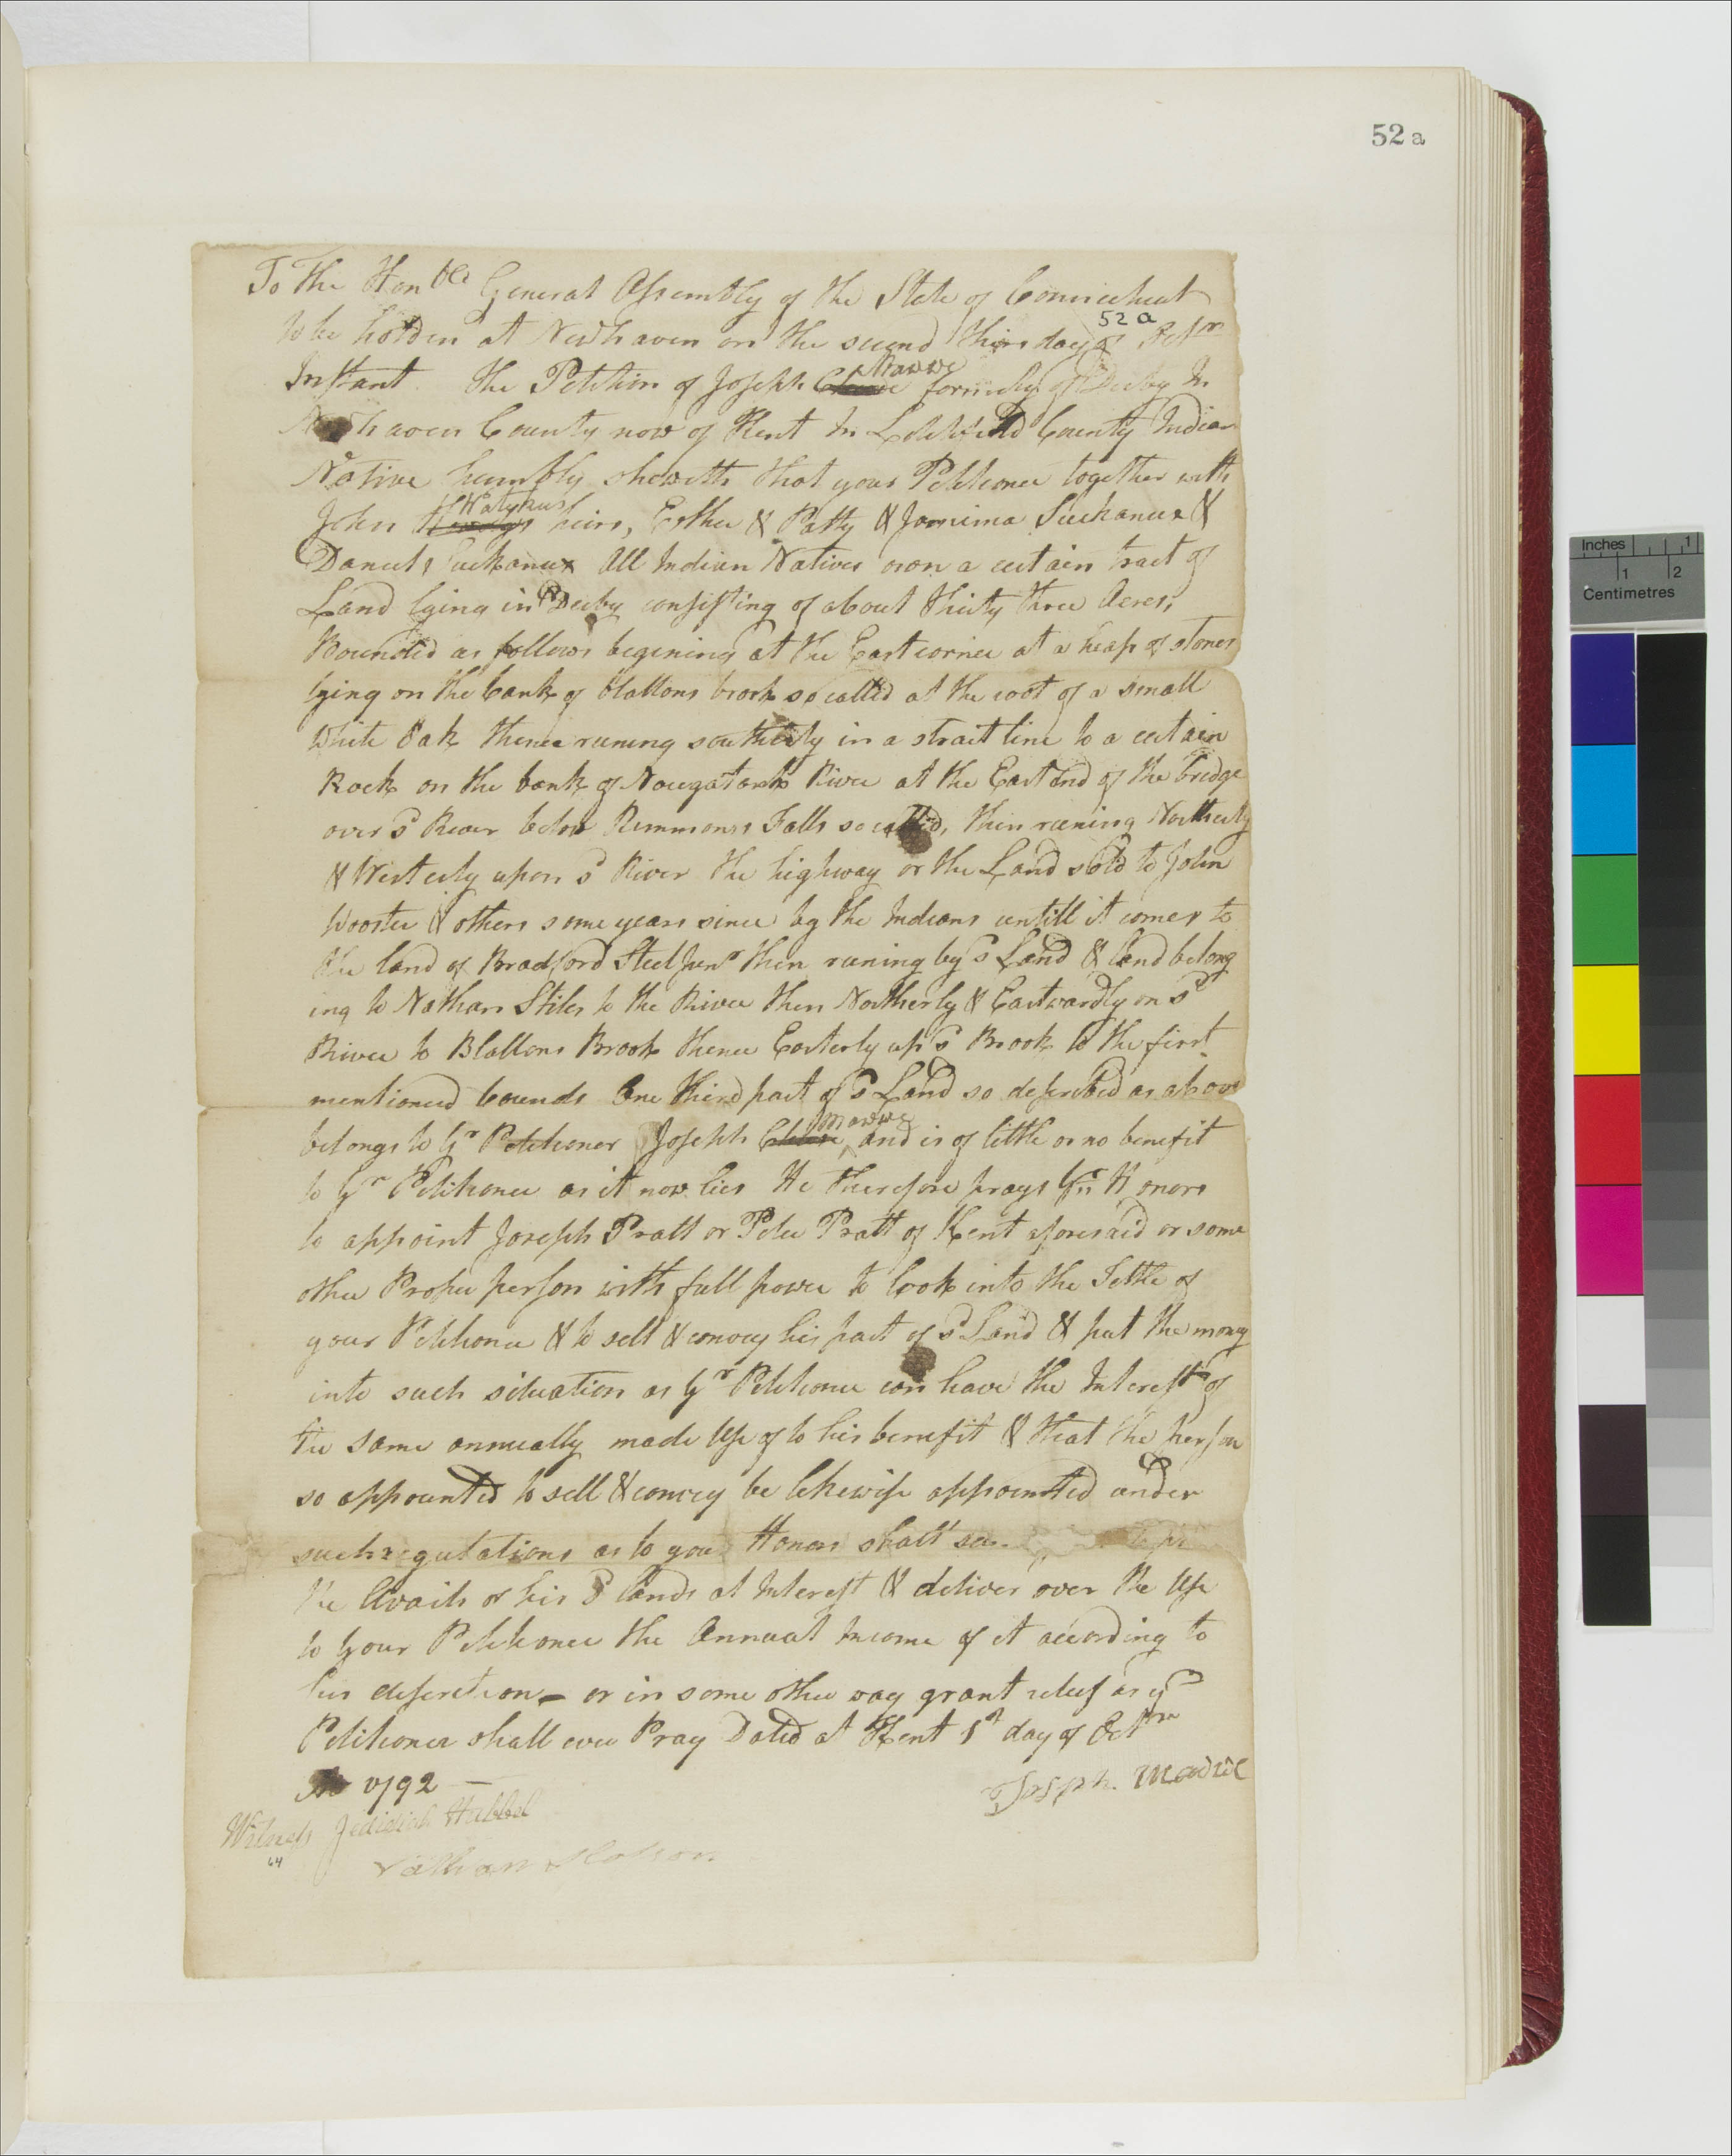 52 a
To The Honble General Assembly of the State of Connecticut
to be holden at Newhaven on the second thirs day of
52 a
Instant The Petition of Joseph Mawwe formerly of Derby In
Newhaven County now of Kent In Litchfield County Indian
Native humbly sheweth that your Petitioner together with
John heirs, Esther & Patty & Jamima Suckanux &
Daniel Suckanux All Indian Natives own a certain tract of
Land lying in Derby consisting of about thirty three Acres,
Bounded as follows begining at the East corner at a heap of stones
lying on the bank of blattons brook so called at the root of a small
White Oak thence runing southerly in a strait line to a certain
Rock on the bank of Naugatuck River at the East end of the bridge
over sd River below Rimmons Falls so called, then runing Northerly
& Westerly upon sd River the highway or the Land sold to John
Wooster & others some years since by the Indians untill it comes to
the land of Bradford Steel Junr then runing by sd Land & land belong
ing to Nathan Stiles to the River then Northerly & Eastwardly on sd
River to Blattons Brook thence Easterly up sd Brook to the first
mentioned bounds One third part of sd Land so described as above
belongs to Yr Petitioner Joseph Mawwe and is of little or no benefit
to Yr Petitioner as it now lies He therefore prays Yr Honors
to appoint Joseph Pratt or Peter Pratt of Kent aforesaid or some
other Proper person with full power to look into the Tittle of
your Petitioner & to sell & convey his part of sd Land & put the mony
into such situation as Yr Petitioner can have the Interest of
the same annually made Use of to his benefit & that the person
so appointed to sell & convey be likewise appointed under
such regulations as to your Honors shall
the Avails of his sd lands at Interest & deliver over the Use
to Your Petitioner the Annual Income of it according to
his descretion - or in some other way grant releif as yr
Petitioner shall ever Pray Dated at Kent 1st day of Octbr
1792 —
Joseph. Mawwe
Witness Jedidiah Hubbel
64
Nathan Slosson
Inches 1
1 2
Centimetres